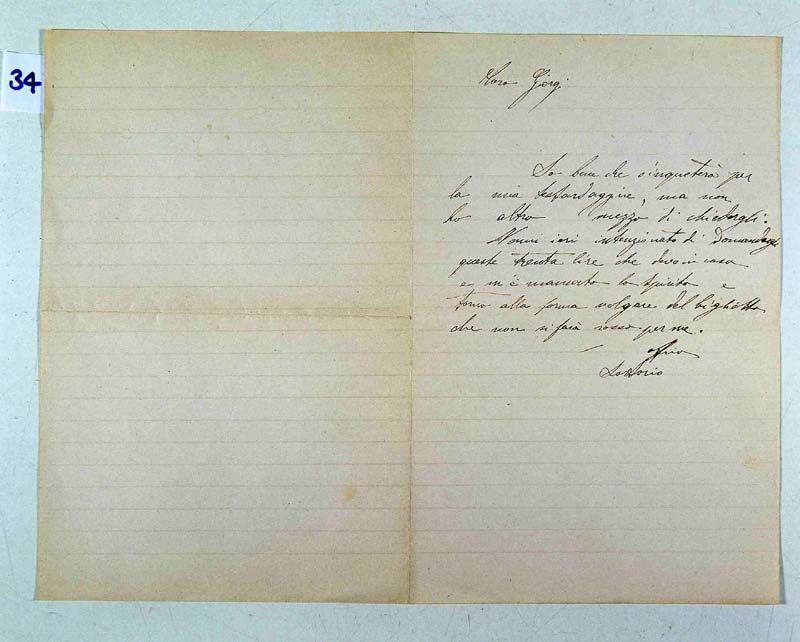 34
Caro Giorgi
So ben che s'inquieterà per
la mia, ma non
ho altro mezzo di chiedergli.
ieri intenzionato di Domandargli
queste trenta lire che devo in casa
e m'è mancato lo spirito e
torno alla forma volgare del biglietto
che non si farà rosso per me.